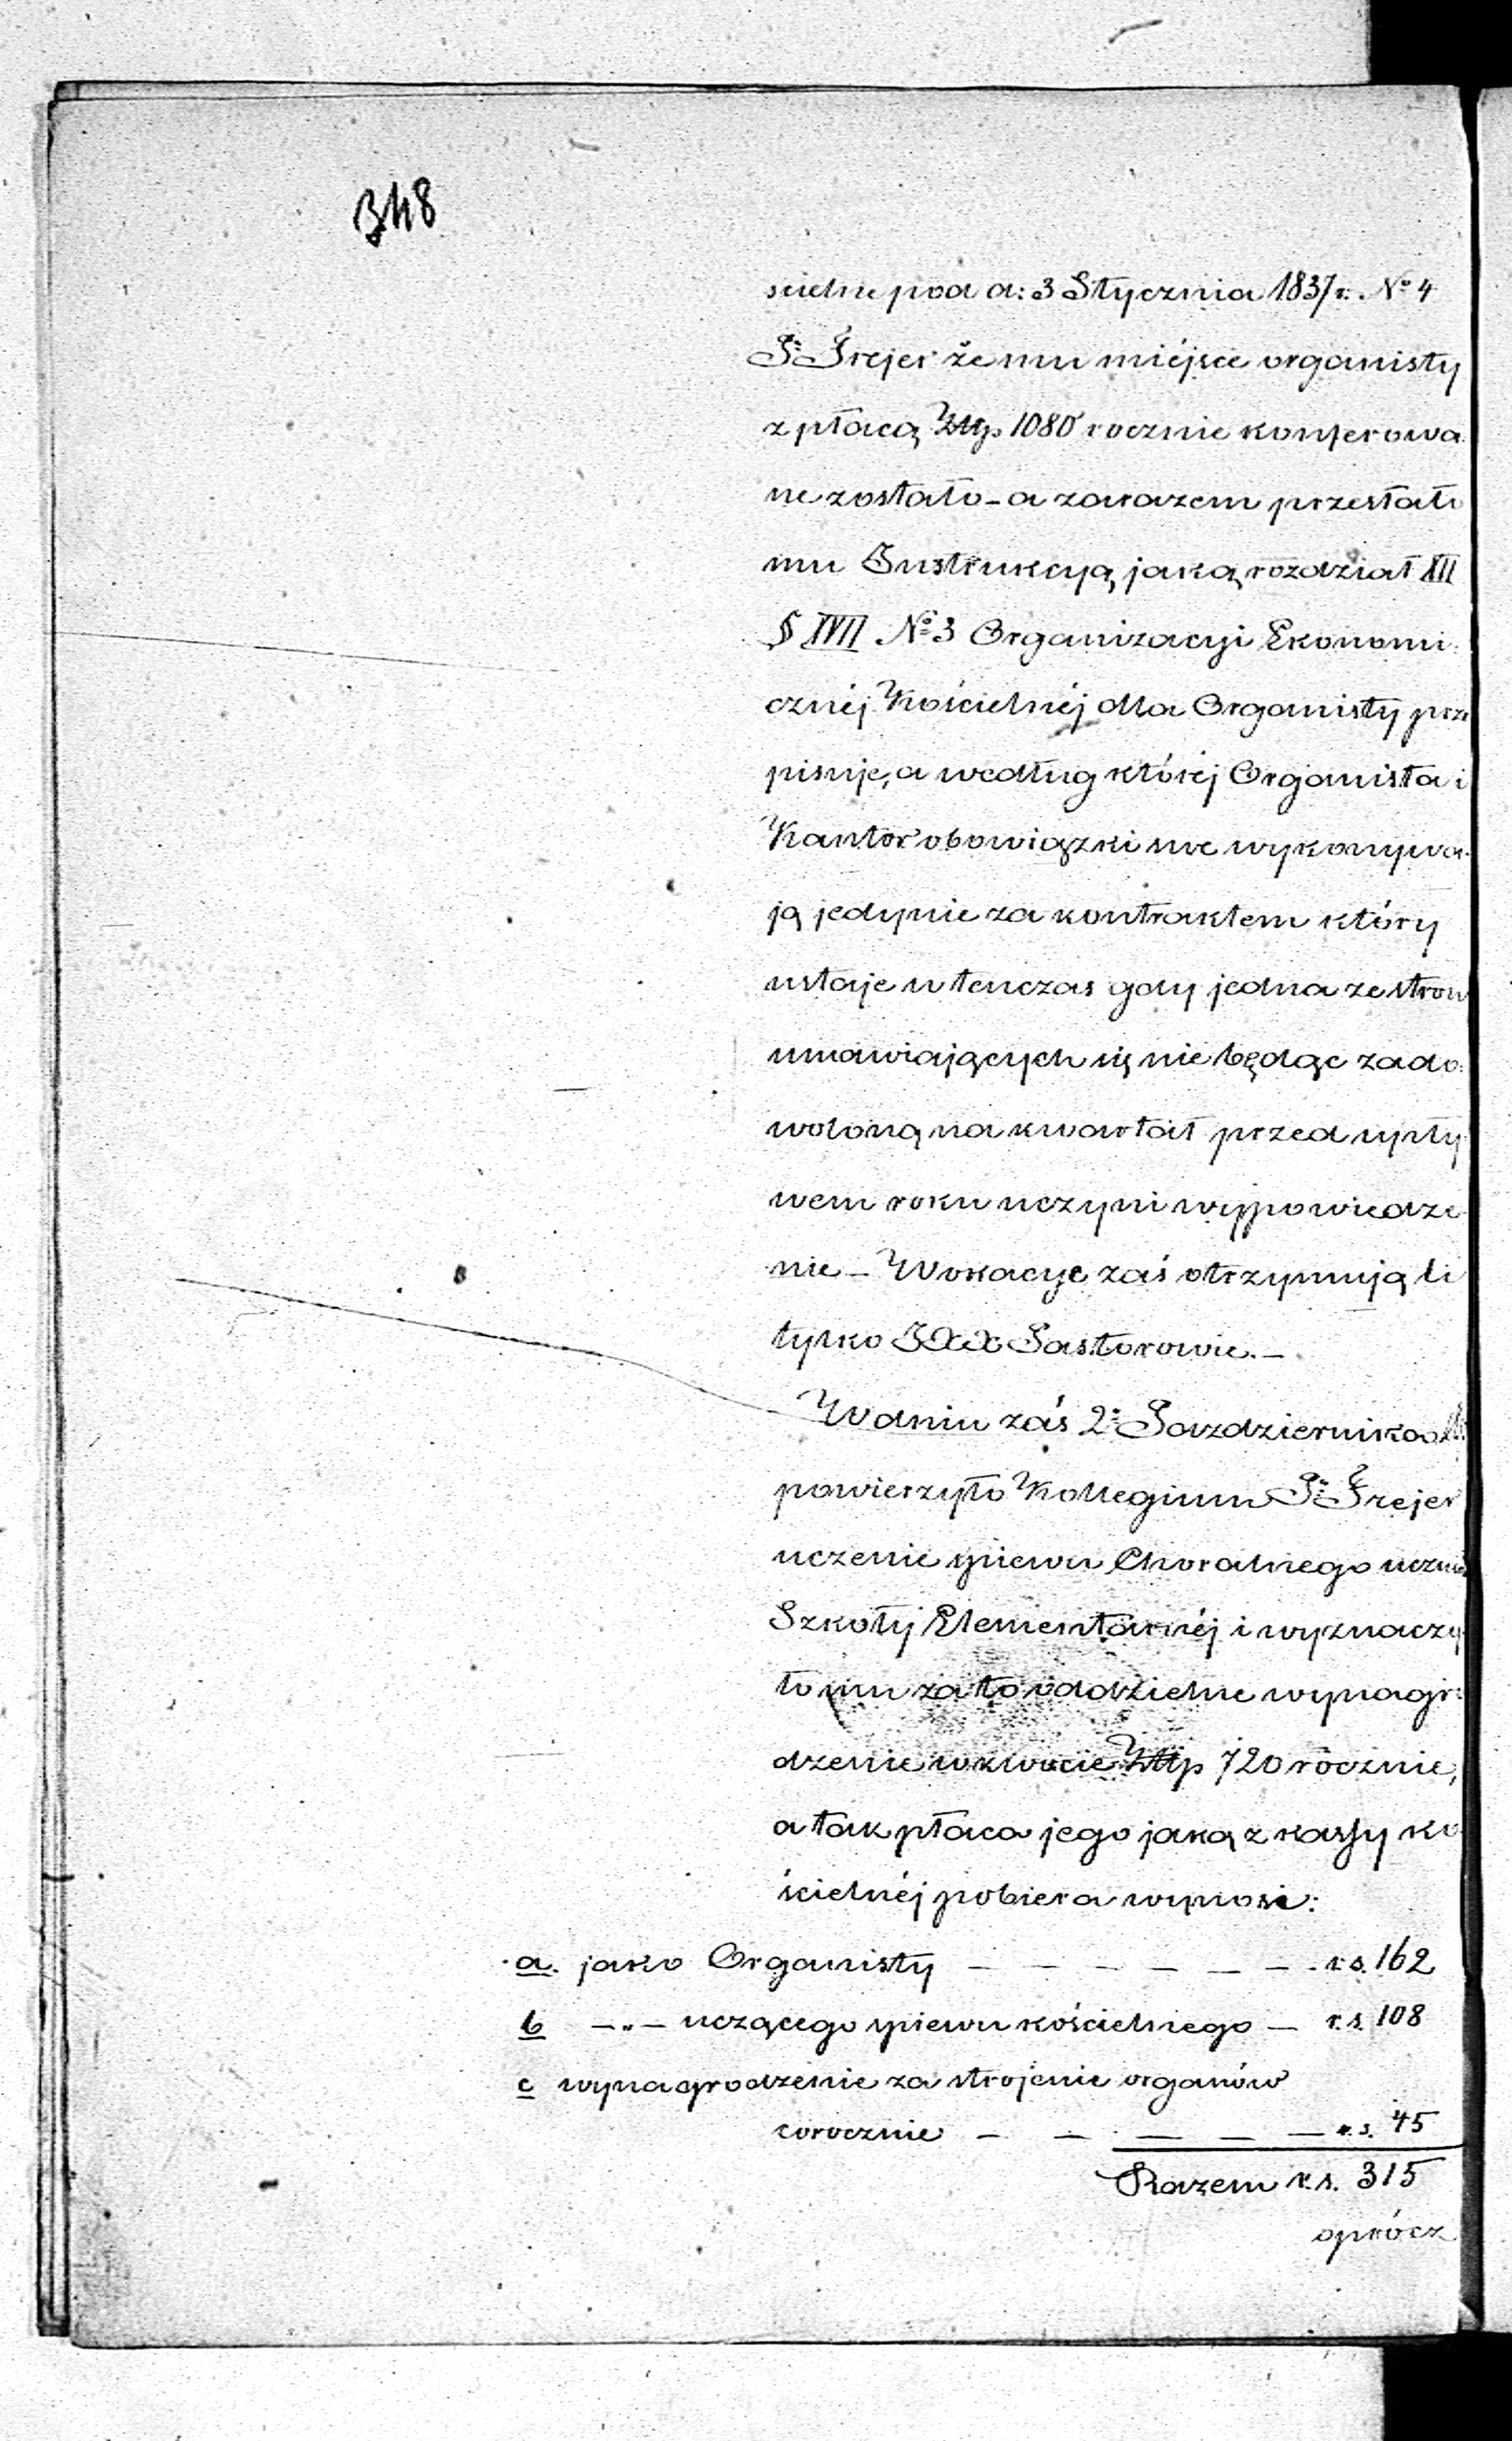 348
ścielne pod d: 3 Stycznia 1837 r. No 4
Pn Frejer że mu miéjsce organisty
z płacą Złtp. 1080 rocznie konferowa
ne zostało – a zarazem przesłało
mu Instrukcyą jaką rozdział XII
§ XVII No 3 Organizacyi Ekonomi-
cznéj Kościelnéj dla Organisty prze
pisuje, a według któréj Organista i
Kantor obowiązki swe wykonywa-
ją jedynie za kontraktem który
ustaje w tenczas gdy jedna ze stron
umawiających się nie będąc zado-
woloną na kwartał przed upły
wem roku uczyni wypowiedze
nie – Wokacye zaś otrzymują li
tylko JXX Pastorowie. –
W dniu zaś 2: Pazdziernika
powierzyło Kollegium Pn Frejer
uczenie spiewu Choralnego uczni
Szkoły Elementarnéj i wyznaczy
ło mu za to oddzielne wynagro
dzenie w kwocie Złtp 720 rocznie,
a tak płaca jego jaką z kassy ko
ścielnéj pobiera wynosi:
a. jako Organisty – – – – – – r.s. 162
b –„– uczącego spiewu kościelnego – r.s. 108
c wynagrodzenie za strojenie organów
corocznie – – – – – r.s. 45
Razem r.s. 315
oprócz